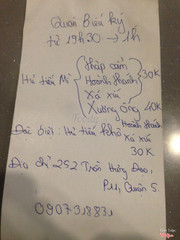 Quán Biếu Ký
từ 19h30 → 1h
Hủ tiếu Mì
Thập cẩm
Hoành thánh 30K
Xá xíu
Xương ống 40K
Hoành thánh
Đặc biệt: Hủ tiếu khô Xá xíu
30K
Địa chỉ 252 Trần Hưng Đạo,
P11, Quận 5.